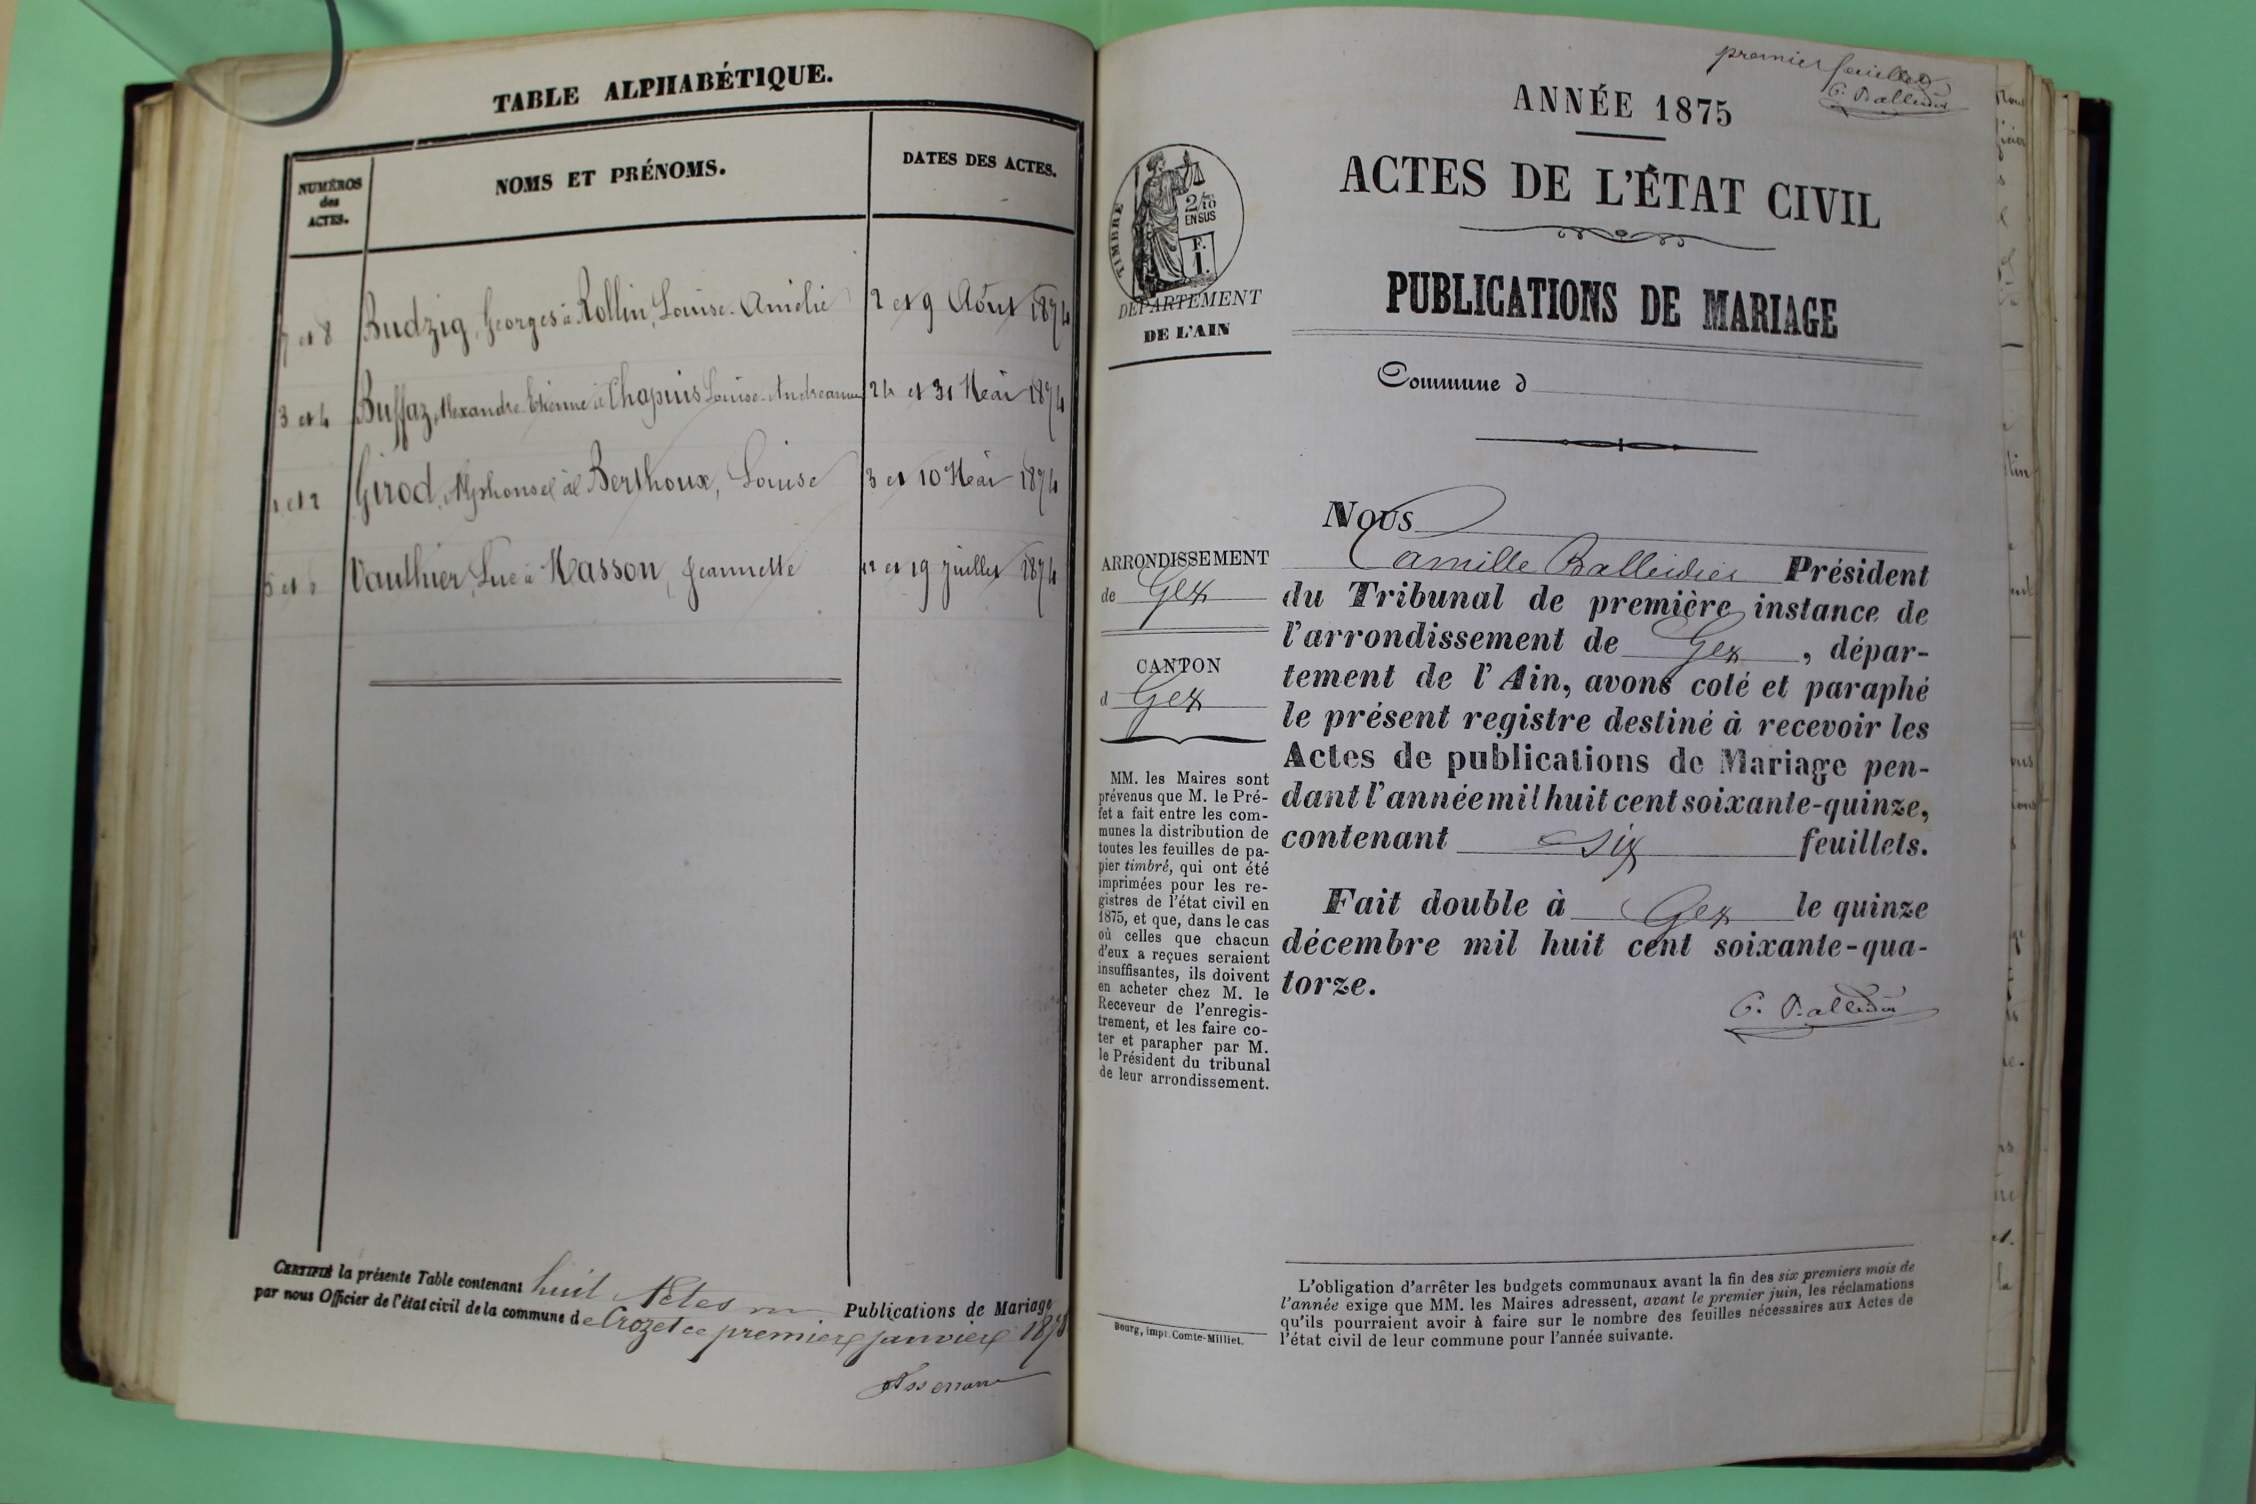 TABLE ALPHABÉTIQUE.
NUMÉROS
des
ACTES.
NOMS ET PRÉNOMS.
DATES DES ACTES.
7 et 8 Budzig, Georges à Rollin, Louise-Amélie 2 et 9 Août 1874
3 et 4 Buffaz, Alexandre-Etienne à Chapuis Louise-Andréanne 24 et 31 Mai 1874
1 et 2 Girod, Alphonse à Berthoux, Louise 3 et 10 Mai 1874
5 et 6 Vauthier, Luc à Masson, Jeannette 12 et 19 juillet 1874
CERTIFIÉ la présente Table contenant huit Actes Publications de Mariage
par nous Officier de l'état civil de la commune de Crozet ce premier janvier
premier feuillet
C. Balleidier
ANNÉE 1875
ACTES DE L'ÉTAT CIVIL
PUBLICATIONS DE MARIAGE
Commune d
TIMBRE
2/10
EN SUS
F.
1.
DÉPARTEMENT
DE L'AIN
ARRONDISSEMENT
de Gex
CANTON
d Gex
MM. les Maires sont
prévenus que M. le Pré-
fet a fait entre les com-
munes la distribution de
toutes les feuilles de pa-
pier timbré, qui ont été
imprimées pour les re-
gistres de l'état civil en
1875, et que, dans le cas
où celles que chacun
d'eux a reçues seraient
insuffisantes, ils doivent
en acheter chez M. le
Receveur de l'enregis-
trement, et les faire co-
ter et parapher par M.
le Président du tribunal
de leur arrondissement.
Bourg, impr. Comte-Milliet.
Nous
Camille Balleidier Président
du Tribunal de première instance de
l'arrondissement de Gex, dépar-
tement de l'Ain, avons coté et paraphé
le présent registre destiné à recevoir les
Actes de publications de Mariage pen-
dant l'année mil huit cent soixante-quinze,
contenant six feuillets.
Fait double à Gex le quinze
décembre mil huit cent soixante-qua-
torze.
C. Balleidier
L'obligation d'arrêter les budgets communaux avant la fin des six premiers mois de
l'année exige que MM. les Maires adressent, avant le premier juin, les réclamations
qu'ils pourraient avoir à faire sur le nombre des feuilles nécessaires aux Actes de
l'état civil de leur commune pour l'année suivante.